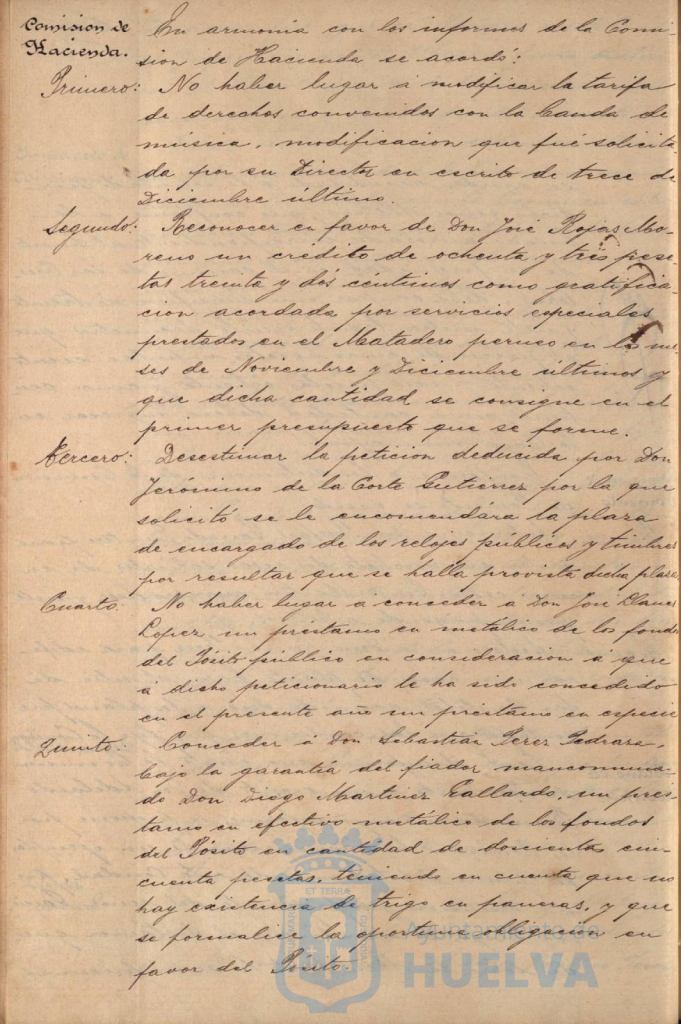 Comision de
Hacienda.
En armonía con los informes de la Comi-
sion de Hacienda se acordó:
Primero: No haber lugar á modificar la tarifa
de derechos convenidos con la banda de
música, modificacion que fué solicita-
da por su Director en escrito de trece de
Diciembre último.
Segundo: Reconocer en favor de Don José Rojas Mo-
reno un crédito de ochenta y tres pese-
tas treinta y dos céntimos como gratifica-
cion acordada por servicios especiales
prestados en el Matadero percueo en los me-
ses de Noviembre y Diciembre últimos y
que dicha cantidad se consigne en el
primer presupuesto que se forme.
Tercero: Desestimar la peticion deducida por Don
Jerónimo de la Corte Gutierrez por la que
solicitó se le encomendára la plaza
de encargado de los relojes públicos y timbres
por resultar que se halla provista dicha plaza.
Cuarto: No haber lugar á conceder á Don José Llanes
Lopez un préstamo en metálico de los fondos
del Pósito público en consideracion á que
á dicho peticionario le ha sido concedido
en el presente año un préstamo en especie
Quinto: Conceder á Don Sebastián Perez Pedraza,
bajo la garantía del fiador mancomuna-
do Don Diego Martinez Gallardo, un prés-
tamo en efectivo metálico de los fondos
del Pósito en cantidad de doscientas cin-
cuenta pesetas, teniendo en cuenta que no
hay existencia de trigo en paneras, y que
se formalice la oportuna obligación en
favor del Pósito.
ET TERRÆ
Ayuntamiento de
HUELVA